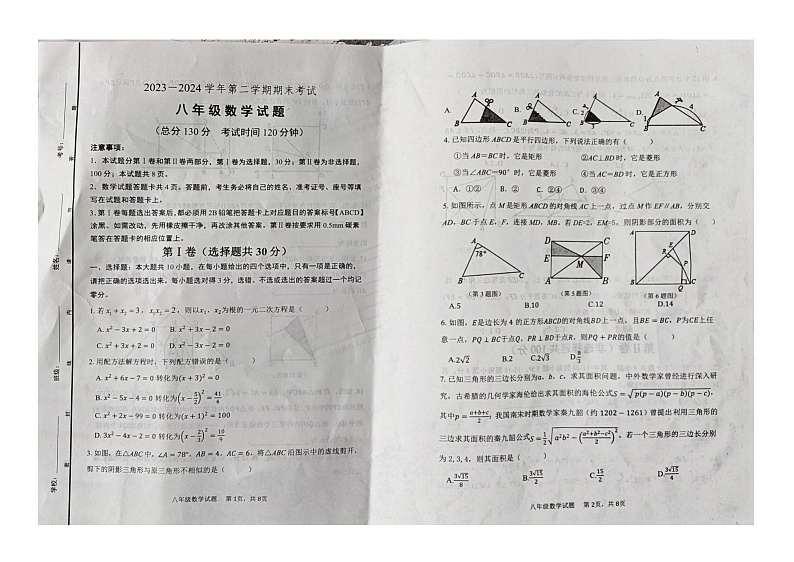 2023－2024学年第二学期期末考试
八年级数学试题
（总分 130 分　考试时间 120 分钟）
注意事项：
1、本试题分第Ⅰ卷和第Ⅱ卷两部分，第Ⅰ卷为选择题，30分；第Ⅱ卷为非选择题，
100分；本试题共8页。
2、数学试题答题卡共4页。答题前，考生务必将自己的姓名、准考证号、座号等填
写在试题和答题卡上。
3、第Ⅰ卷每题选出答案后，都必须用2B铅笔把答题卡上对应题目的答案标号【ABCD】
涂黑。如需改动，先用橡皮擦干净，再改涂其他答案。第Ⅱ卷要求用0.5mm碳素
笔答在答题卡的相应位置上。
第Ⅰ卷（选择题共30分）
一、选择题：本大题共10小题，在每小题给出的四个选项中，只有一项是正确的，
请把正确的选项选出来。每小题选对得3分，选错、不选或选出的答案超过一个均记
零分。
1. 若x₁+x₂=3，x₁x₂=2，则以x₁，x₂为根的一元二次方程是（　　）
A. x²−3x+2=0　B. x²+3x−2=0
C. x²+3x+2=0　D. x²−3x−2=0
2. 用配方法解方程时，下列配方错误的是（　　）
A. x²+6x−7=0 转化为(x+3)²=0
B. x²−5x−4=0 转化为(x−5/2)²=41/4
C. x²+2x−99=0 转化为(x+1)²=100
D. 3x²−4x−2=0 转化为(x−2/3)²=10/9
3. 如图，在△ABC中，∠A=78°，AB=4，AC=6，将△ABC沿图示中的虚线剪开，
剪下的阴影三角形与原三角形不相似的是（　　）
八年级数学试题　第1页，共8页
学校：
班级：
姓名：
考号：
A.　B.　C.　D.
4. 已知四边形ABCD是平行四边形，下列说法正确的有（　　）
①当AB=BC时，它是矩形　②AC⊥BD时，它是菱形
③当∠ABC=90°时，它是菱形　④当AC=BD时，它是正方形
A. ①②　B. ②　C. ②④　D. ③④
5. 如图所示，点M是矩形ABCD的对角线AC上一点，过点M作EF∥AB，分别交
AD，BC于点E，F，连接MD，MB．若DE=2，EM=5，则阴影部分的面积为（　　）
（第3题图）　（第5题图）　（第6题图）
A.5　B.10　C.12　D.14
6. 如图，E是边长为4的正方形ABCD的对角线BD上一点，且BE=BC，P为CE上任
意一点，PQ⊥BC于点Q，PR⊥BD于点R，则PQ+PR的值是（　　）
A.2√2　B.2　C.2√3　D.8/3
7. 已知三角形的三边长分别为a、b、c，求其面积问题，中外数学家曾经进行深入研
究，古希腊的几何学家海伦给出求其面积的海伦公式S=√(p(p−a)(p−b)(p−c))，
其中p=(a+b+c)/2；我国南宋时期数学家秦九韶（约1202−1261）曾提出利用三角形的
三边求其面积的秦九韶公式S=1/2√(a²b²−((a²+b²−c²)/2)²)，若一个三角形的三边长分别
为2, 3, 4，则其面积是（　　）
A.3√15/8　B.3√15/2　C.15/2　D.3√15/4
八年级数学试题　第2页，共8页